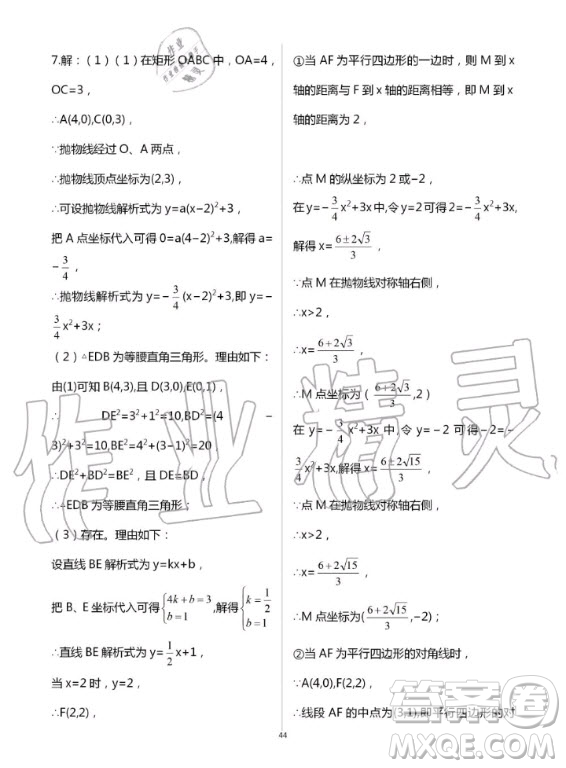 7.解：（1）（1）在矩形 OABC 中，OA=4，
OC=3，
∴A(4,0),C(0,3)，
∵抛物线经过 O、A 两点，
∴抛物线顶点坐标为(2,3)，
∴可设抛物线解析式为 y=a(x−2)²+3，
把 A 点坐标代入可得 0=a(4−2)²+3,解得 a=
−3/4，
∴抛物线解析式为 y=−3/4(x−2)²+3,即 y=−
3/4x²+3x；
（2）△EDB 为等腰直角三角形。理由如下：
由(1)可知 B(4,3),且 D(3,0),E(0,1)，
∴DE²=3²+1²=10,BD²=(4−
3)²+3²=10,BE²=4²+(3−1)²=20
∴DE²+BD²=BE²，且 DE=BD，
∴△EDB 为等腰直角三角形；
（3）存在。理由如下：
设直线 BE 解析式为 y=kx+b，
把 B、E 坐标代入可得{4k+b=3 b=1，解得{k=1/2 b=1，
∴直线 BE 解析式为 y=1/2x+1，
当 x=2 时，y=2，
∴F(2,2)，
①当 AF 为平行四边形的一边时，则 M 到 x
轴的距离与 F 到 x 轴的距离相等，即 M 到 x
轴的距离为 2，
∴点 M 的纵坐标为 2 或−2，
在 y=−3/4x²+3x 中,令 y=2 可得 2=−3/4x²+3x,
解得 x=(6±2√3)/3，
∵点 M 在抛物线对称轴右侧，
∴x>2，
∴x=(6+2√3)/3，
∴M 点坐标为（(6+2√3)/3,2）
在 y=−3/4x²+3x 中,令 y=−2 可得−2=−
3/4x²+3x,解得 x=(6±2√15)/3，
∵点 M 在抛物线对称轴右侧，
∴x>2，
∴x=(6+2√15)/3，
∴M 点坐标为((6+2√15)/3,−2)；
②当 AF 为平行四边形的对角线时，
∵A(4,0),F(2,2)，
∴线段 AF 的中点为(3,1),即平行四边形的对
44
作业精灵
答案圈
MXQE.COM